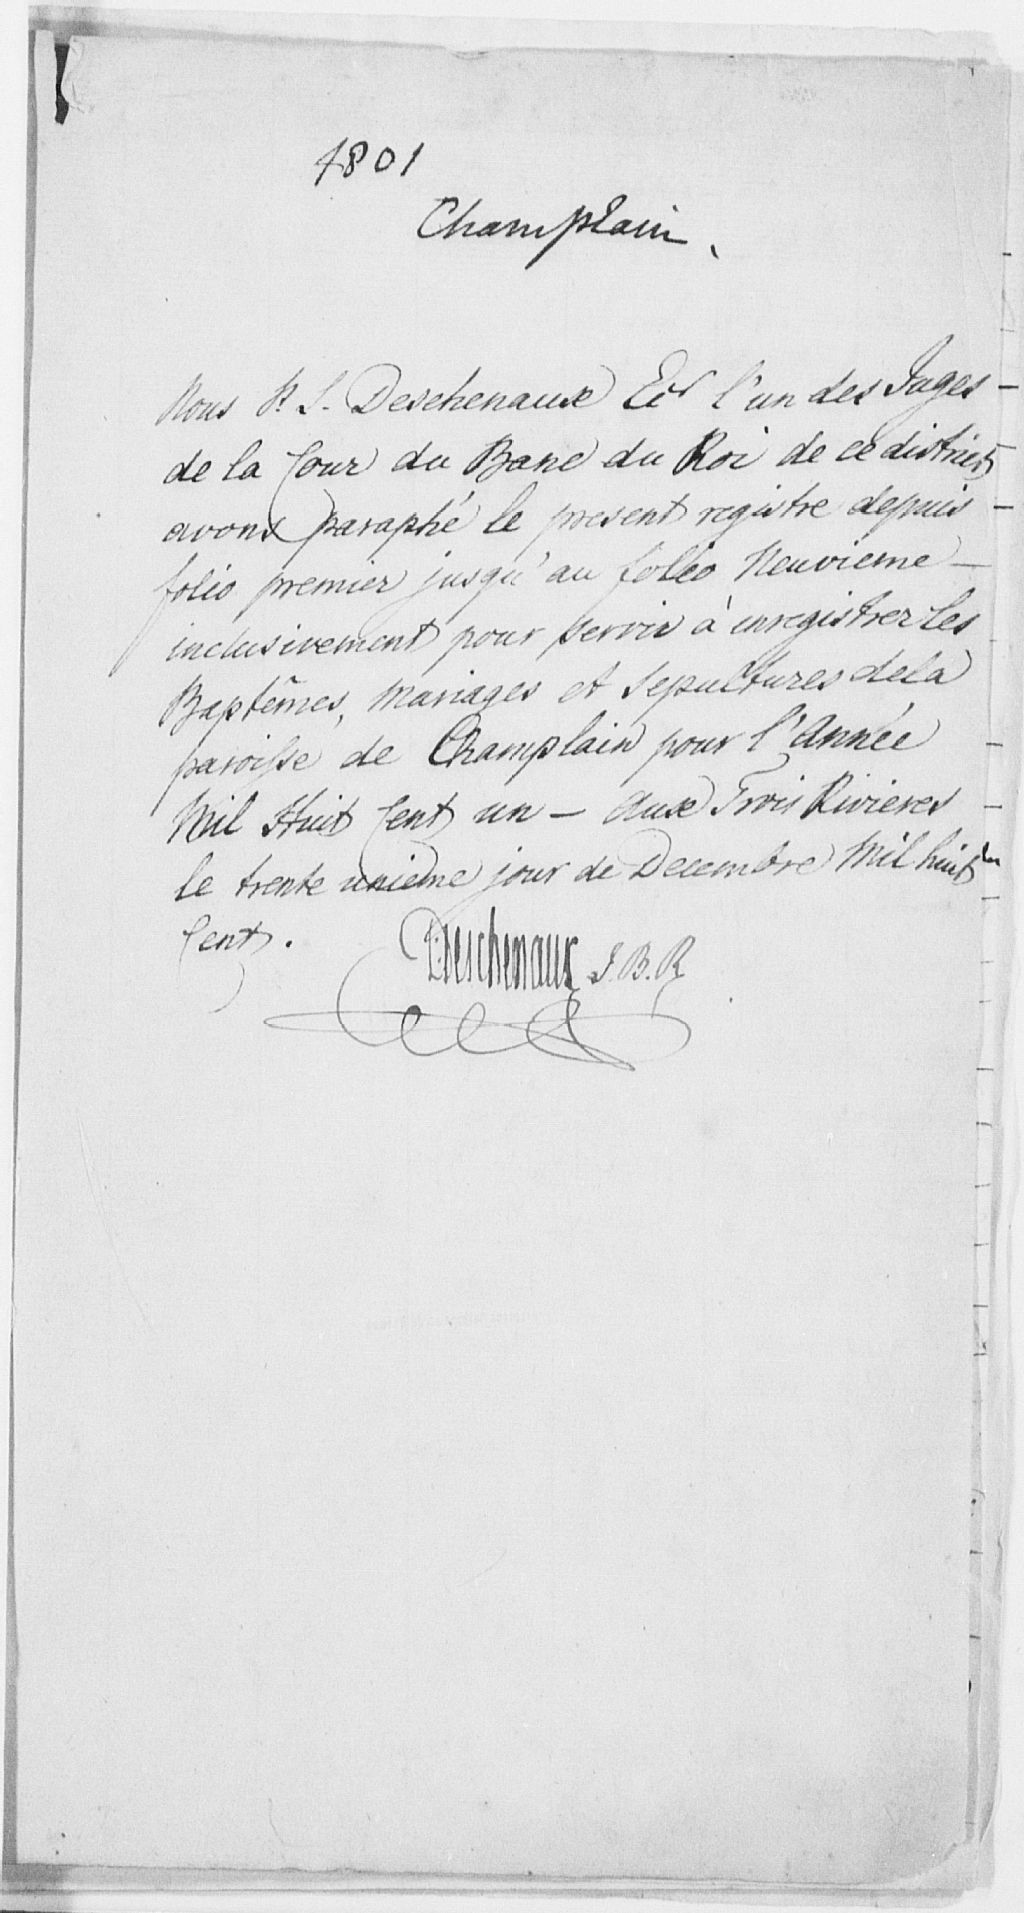 1801
Champlain.
Nous P. L. Deschenaux Ecr l'un des Juges
de la Cour du Banc du Roi de ce district
avons paraphé le present registre depuis
folio premier jusqu'au folio Neuvieme
inclusivement pour servir à enregistrer les
Baptêmes, Mariages et Sepultures dela
paroisse de Champlain pour l'Année
Mil Huit Cent un — Aux Trois Rivieres
le trente unieme jour de Decembre Mil huit
Cent.
Deschenaux J.B.R